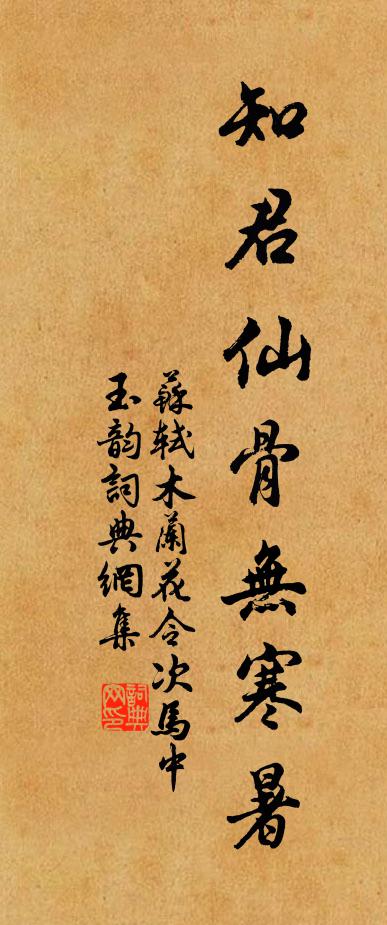 知君仙骨無寒暑
蘇軾木蘭花令次馬中
玉韵詞典網集
詞典网印